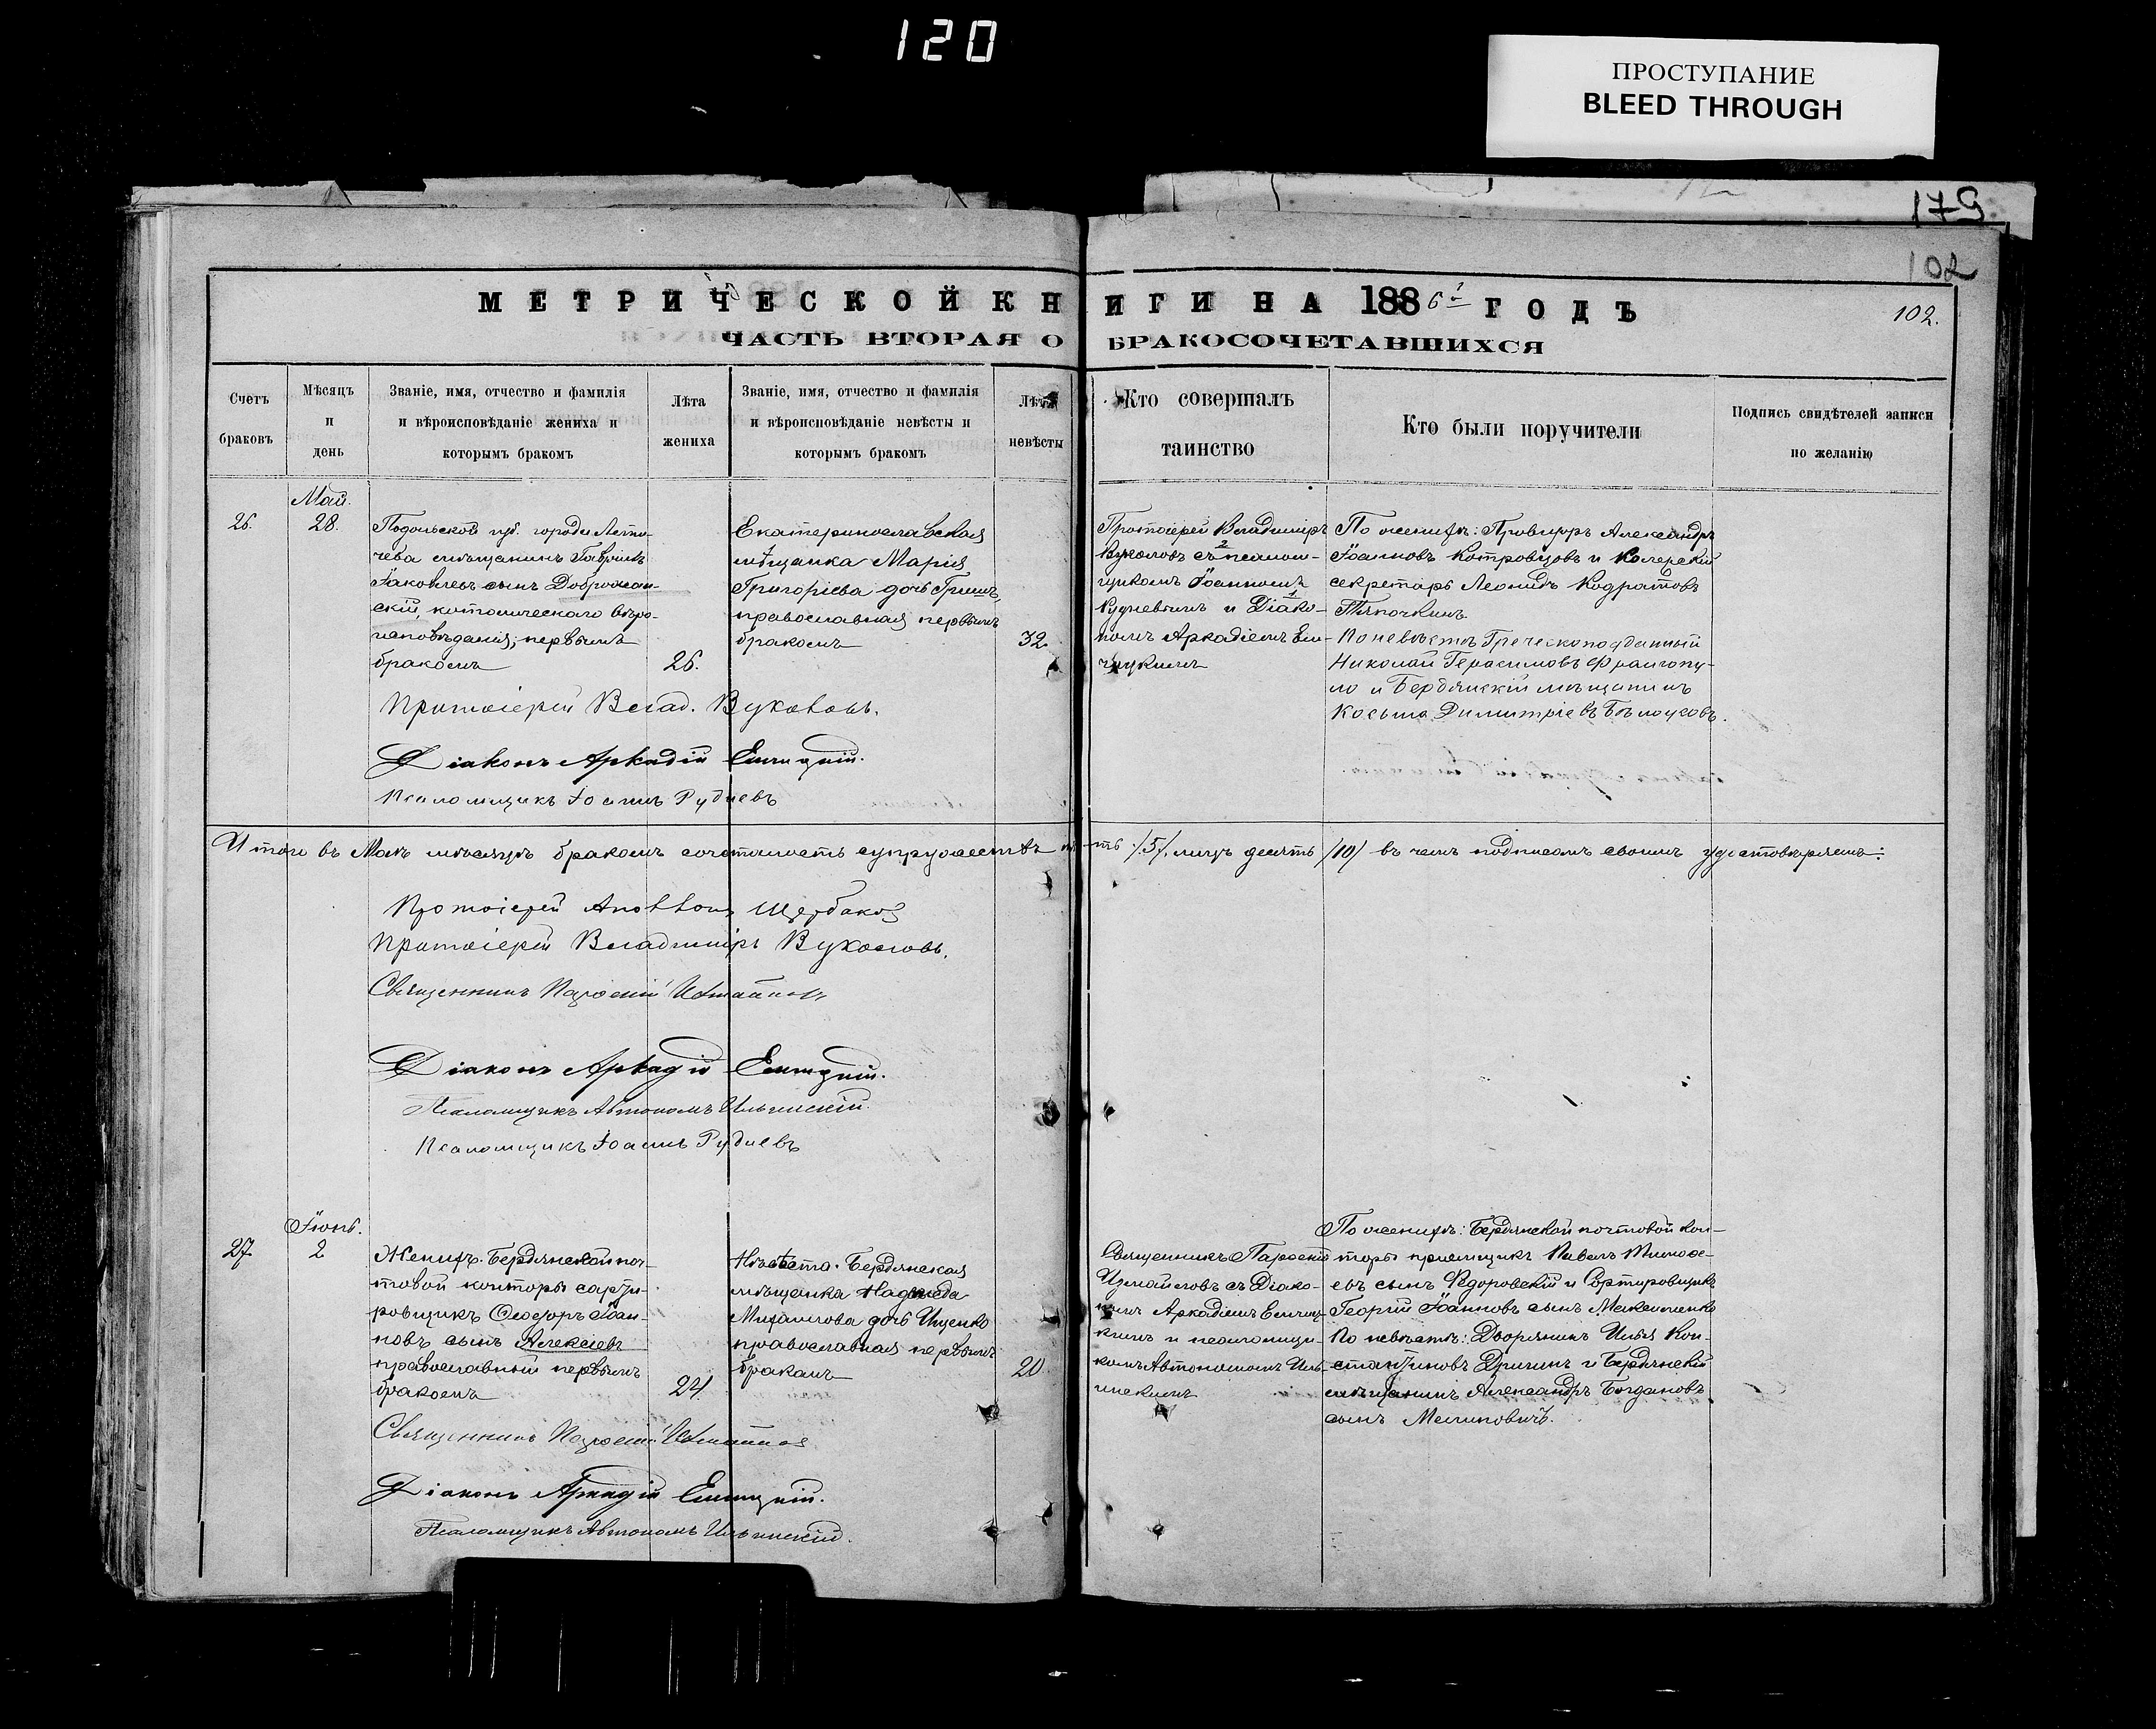 120
ПРОСТУПАНИЕ
BLEED THROUGH
179
102
МЕТРИЧЕСКОЙ КНИГИ НА 1886й ГОДЪ
102.
ЧАСТЬ ВТОРАЯ О БРАКОСОЧЕТАВШИХСЯ
Счетъ
браковъ
Мѣсяцъ
и
день
Званіе, имя, отчество и фамилія
и вѣроисповѣданіе жениха и
которымъ бракомъ
Лѣта
жениха
Званіе, имя, отчество и фамилія
и вѣроисповѣданіе невѣсты и
которымъ бракомъ
Лѣта
невѣсты
Кто совершалъ
таинство
Кто были поручители
Подпись свидѣтелей записи
по желанію
26.
Май.
28.
Подольской губ. города Лети-
чева мѣщанинъ Гавріилъ
Іаковлевъ сынъ Доброжан-
скій, католическаго вѣро-
исповѣданія, первымъ
бракомъ
26.
Екатеринославская
мѣщанка Марія
Григоріева дочь
православная первымъ
бракомъ
32.
Протоіерей Владиміръ
Вуколовъ съ 2 псалом-
щикомъ Іоанномъ
Рудневымъ и 1 Діако-
номъ Аркадіемъ Ем-
По женихѣ: Провизоръ Александръ
Іоанновъ и Колежскій
секретарь Леонидъ Кодратовъ
Тяпочкинъ.
По невѣстѣ Греческоподданный
Николай Герасимовъ Франгопу-
ло и Бердянскій мѣщанинъ
Косьма Димитріевъ Бѣлоусовъ.
Протоіерей Влад. Вуколовъ.
Діаконъ Аркадій
Псаломщикъ Іоаннъ Рудневъ
Итого въ Маѣ мѣсяцѣ бракомъ сочеталось супружествъ пять /5/, лицъ десять /10/ въ чемъ подписомъ своимъ удостовѣряемъ:
Протоіерей Аполлонъ Щербаковъ
Протоіерей Владиміръ Вуколовъ.
Священникъ Паисій Измайловъ
Діаконъ Аркадій
Псаломщикъ Автономъ Ильинскій.
Псаломщикъ Іоаннъ Рудневъ
27
Іюнь.
2
Женихъ. Бердянской поч-
товой конторы сорти-
ровщикъ Ѳеодоръ Іоан-
новъ сынъ Алексѣевъ
православный первымъ
бракомъ
24.
Невѣста. Бердянская
мѣщанка Надежда
Михаилова дочь Ищенко
православная первымъ
бракомъ
20.
Священникъ Паисій
Измайловъ съ Діако-
номъ Аркадіемъ
кимъ и псаломщи-
комъ Автономомъ Иль-
инскимъ
По женихѣ: Бердянской почтовой кон-
торы пріемщикъ Павелъ Тимофе-
евъ сынъ Ѳедоровскій и Сортировщикъ
Георгій Іоанновъ сынъ Максименко
По невѣстѣ: Дворянинъ Илья Кон-
стантиновъ и Бердянскій
мѣщанинъ Александръ Богдановъ
сынъ
Священникъ Паисій Измайловъ
Діаконъ Аркадій
Псаломщикъ Автономъ Ильинскій.